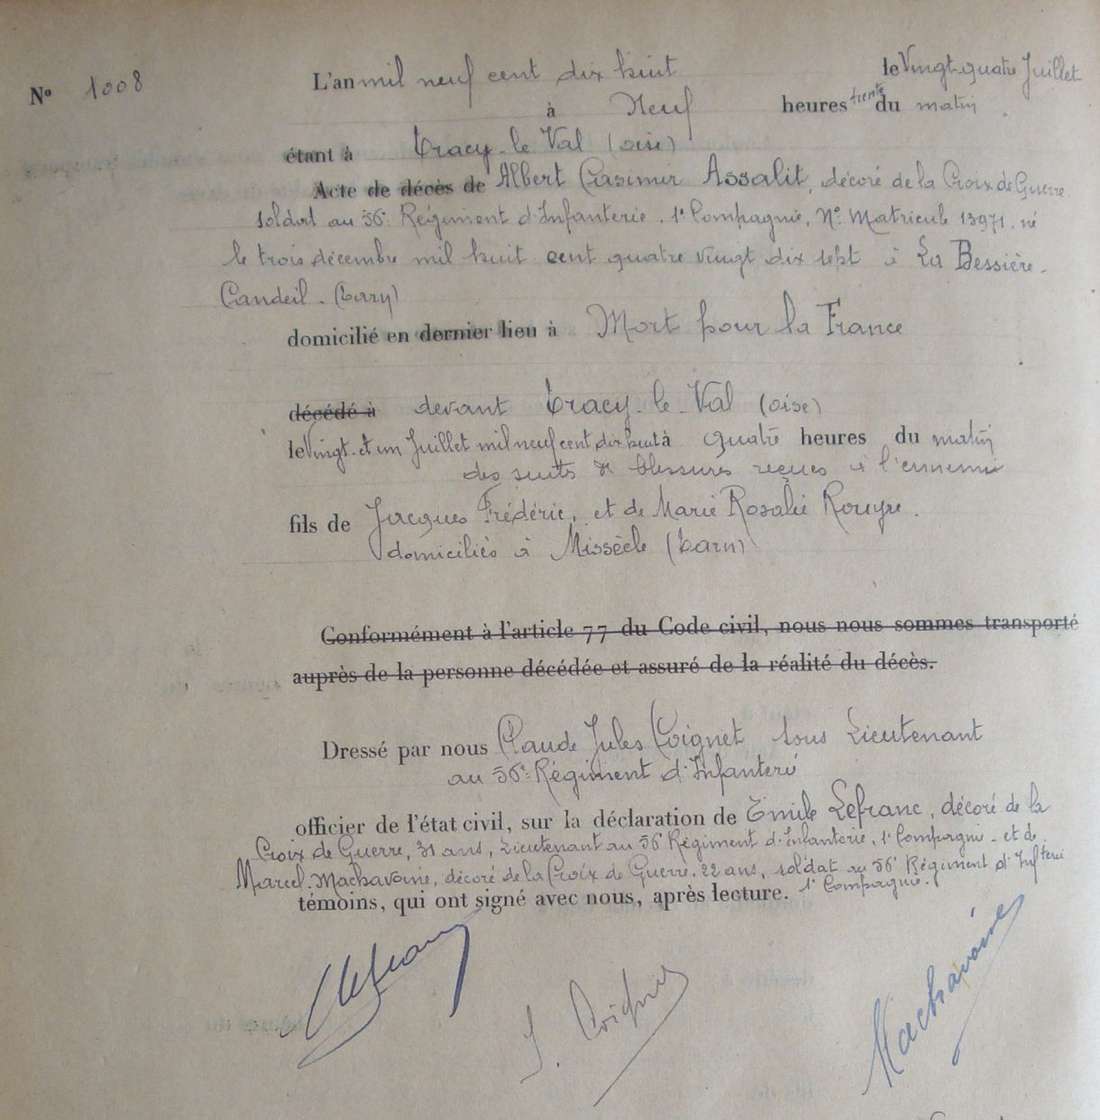 No 1008 L'an mil neuf cent dix huit le Vingt-quatre Juillet
à Neuf heures trente du matin
étant à Tracy-le Val (oise)
Acte de décès de Albert Casimir Assalit, décoré de la Croix de Guerre
soldat au 56e Régiment d'Infanterie. 1e Compagnie, No Matricule 13971. né
le trois décembre mil huit cent quatre vingt dix sept à La Bessière-
Candeil - (Tarn)
domicilié en dernier lieu à Mort pour la France
décédé à devant Tracy-le-Val (oise)
le Vingt-et un Juillet mil neuf cent dix huit à quatre heures du matin
des suites de blessures reçues à l'ennemi
fils de Jacques Frédéric, et de Marie Rosalie Roueyre.
domiciliés à Missècle (Tarn)
Conformément à l'article 77 du Code civil, nous nous sommes transporté
auprès de la personne décédée et assuré de la réalité du décès.
Dressé par nous Claude Jules Coignet sous Lieutenant
au 56e Régiment d'Infanterie
officier de l'état civil, sur la déclaration de Emile Lefranc, décoré de la
Croix de Guerre, 31 ans, Lieutenant au 56e Régiment d'Infanterie, 1e Compagnie - et de
Marcel Machavoine, décoré de la Croix de Guerre. 22 ans, soldat au 56e Régiment d'Infterie
1e Compagnie.
témoins, qui ont signé avec nous, après lecture.
Lefranc J. Coignet Machavoine